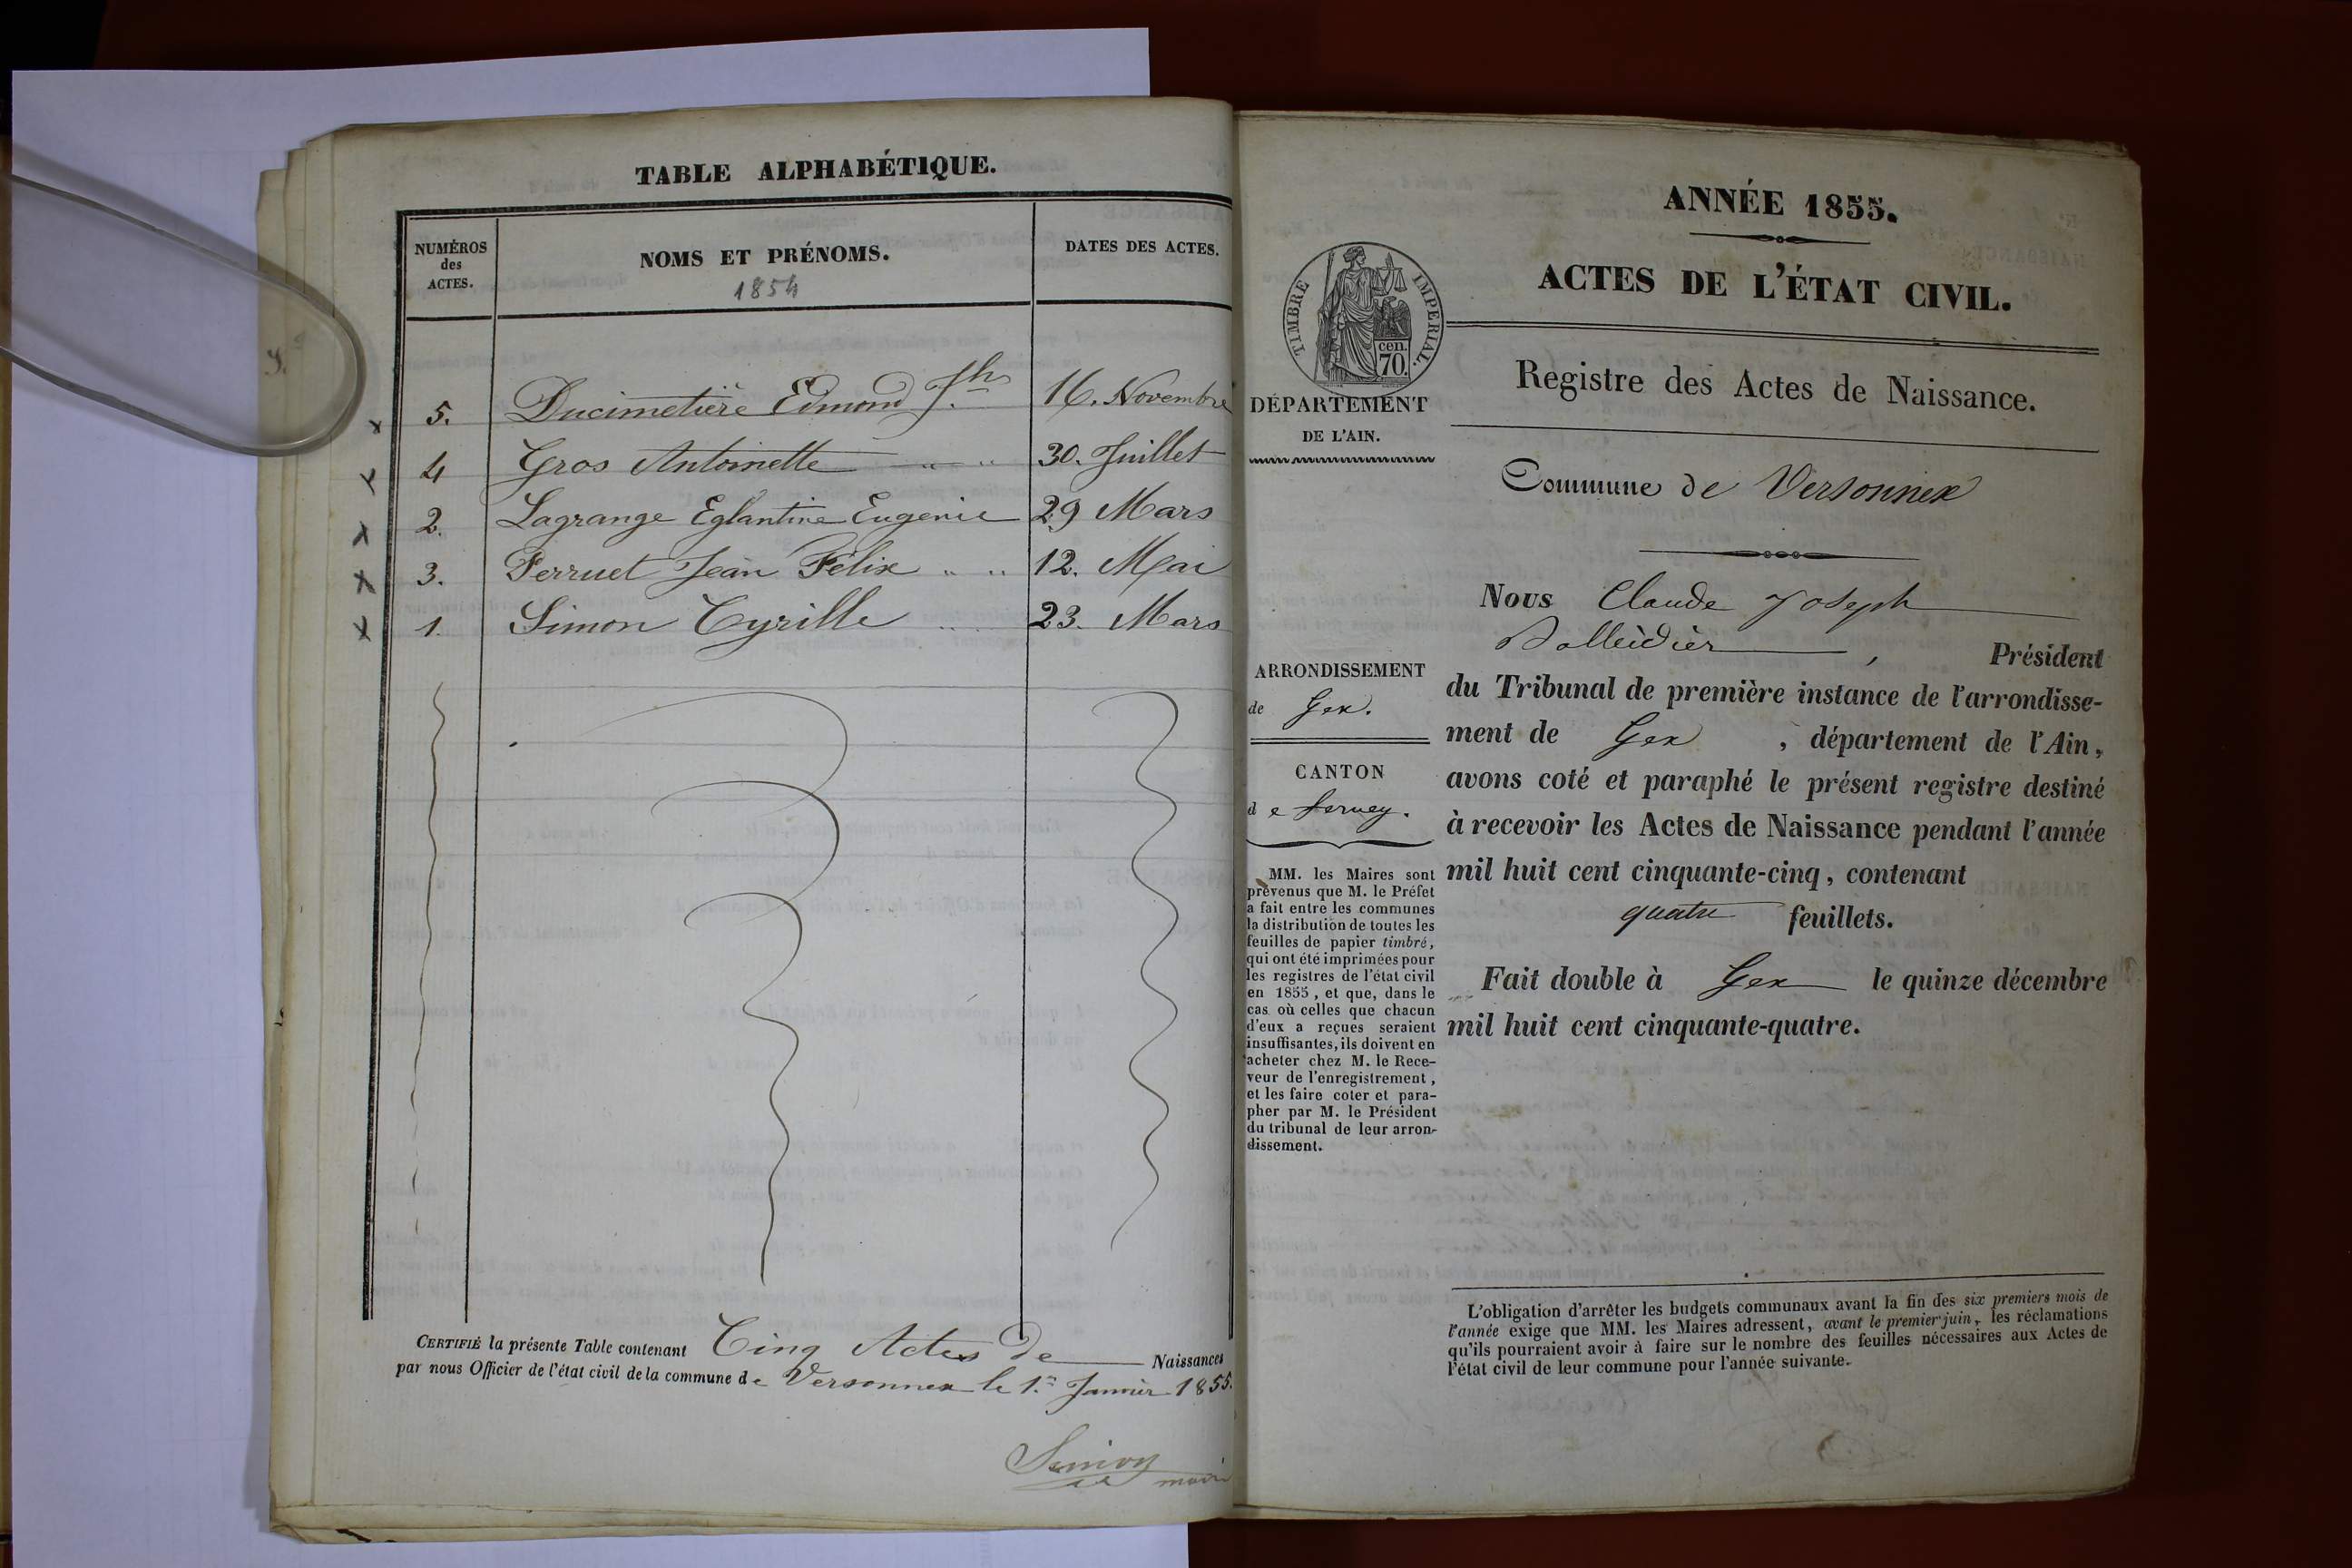 TABLE ALPHABÉTIQUE.
NUMÉROS
des
ACTES.
NOMS ET PRÉNOMS.
1854
DATES DES ACTES.
5. Ducimetière Edmond Jh 16. Novembre
4 Gros Antoinette 30. Juillet
2. Lagrange Eglantine Eugenie 29 Mars
3. Perruet Jean Félix 12. Mai
1. Simon Cyrille 23. Mars
CERTIFIÉ la présente Table contenant Cinq Actes de Naissances
par nous Officier de l'état civil de la commune de Versonnex le 1er Janvier 1855.
maire
ANNÉE 1855.
ACTES DE L'ÉTAT CIVIL.
TIMBRE IMPERIAL.
cen.
70.
DÉPARTEMENT
DE L'AIN.
Registre des Actes de Naissance.
Commune de Versonnex
ARRONDISSEMENT
de Gex.
CANTON
de Ferney.
MM. les Maires sont
prévenus que M. le Préfet
a fait entre les communes
la distribution de toutes les
feuilles de papier timbré,
qui ont été imprimées pour
les registres de l'état civil
en 1855, et que, dans le
cas où celles que chacun
d'eux a reçues seraient
insuffisantes, ils doivent en
acheter chez M. le Rece-
veur de l'enregistrement,
et les faire coter et para-
pher par M. le Président
du tribunal de leur arron-
dissement.
Nous Claude Joseph
, Président
du Tribunal de première instance de l'arrondisse-
ment de Gex , département de l'Ain,
avons coté et paraphé le présent registre destiné
à recevoir les Actes de Naissance pendant l'année
mil huit cent cinquante-cinq, contenant
quatre feuillets.
Fait double à Gex le quinze décembre
mil huit cent cinquante-quatre.
L'obligation d'arrêter les budgets communaux avant la fin des six premiers mois de
l'année exige que MM. les Maires adressent, avant le premier juin, les réclamations
qu'ils pourraient avoir à faire sur le nombre des feuilles nécessaires aux Actes de
l'état civil de leur commune pour l'année suivante.